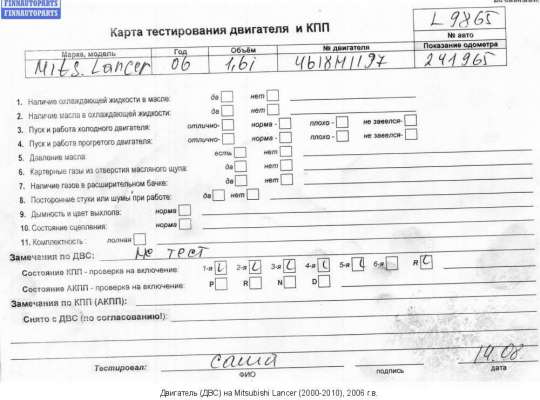 FINNAUTOPARTS
FINNAUTOPARTS
Карта тестирования двигателя и КПП
L 9865
№ авто
Марка, модель Год Объём № двигателя Показание одометра
Mits. Lancer 06 1,6i 4G18M1197 241965
1. Наличие охлаждающей жидкости в масле: да нет
2. Наличие масла в охлаждающей жидкости: да нет
3. Пуск и работа холодного двигателя: отлично- норма - плохо - не завелся-
4. Пуск и работа прогретого двигателя: отлично- норма - плохо - не завелся-
5. Давление масла: есть нет
6. Картерные газы из отверстия масляного щупа: да нет
7. Наличие газов в расширительном бачке: да нет
8. Посторонние стуки или шумы при работе: да нет
9. Дымность и цвет выхлопа: норма
10. Состояние сцепления: норма
11. Комплектность : полная
Замечания по ДВС: не тест
Состояние КПП - проверка на включение: 1-я 2-я 3-я 4-я 5-я 6-я R
Состояние АКПП - проверка на включение: P R N D
Замечания по КПП (АКПП):
Снято с ДВС (по согласованию!):
Тестировал: саша 14.08
ФИО подпись дата
Двигатель (ДВС) на Mitsubishi Lancer (2000-2010), 2006 г.в.